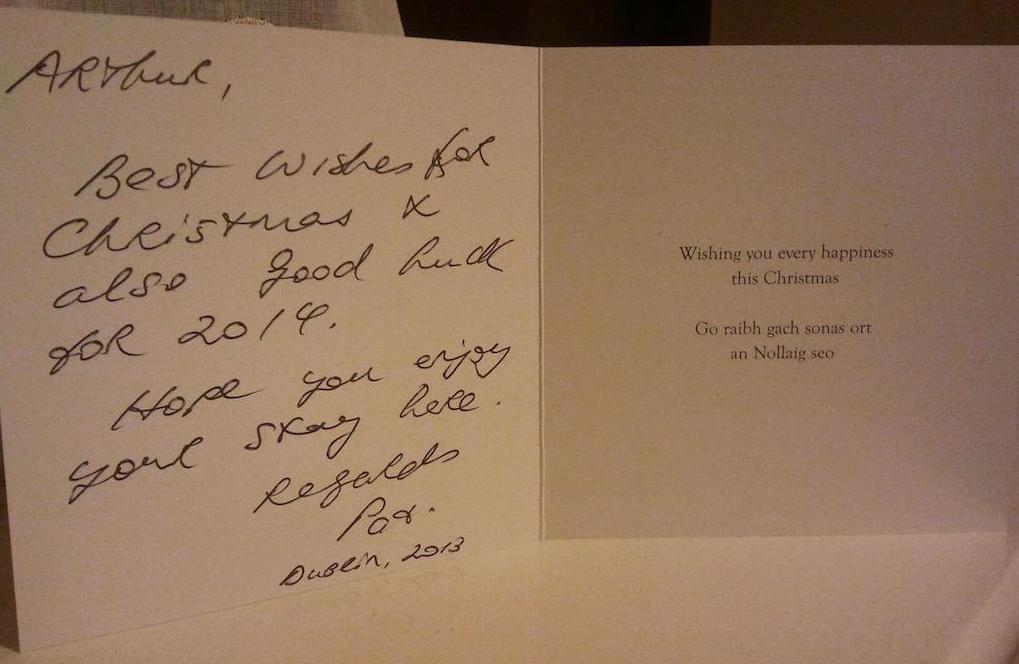 Arthur,
Best Wishes for
Christmas &
also good luck
for 2014.
Hope you enjoy
your stay here.
Regards
Pat.
Dublin, 2013
Wishing you every happiness
this Christmas
Go raibh gach sonas ort
an Nollaig seo